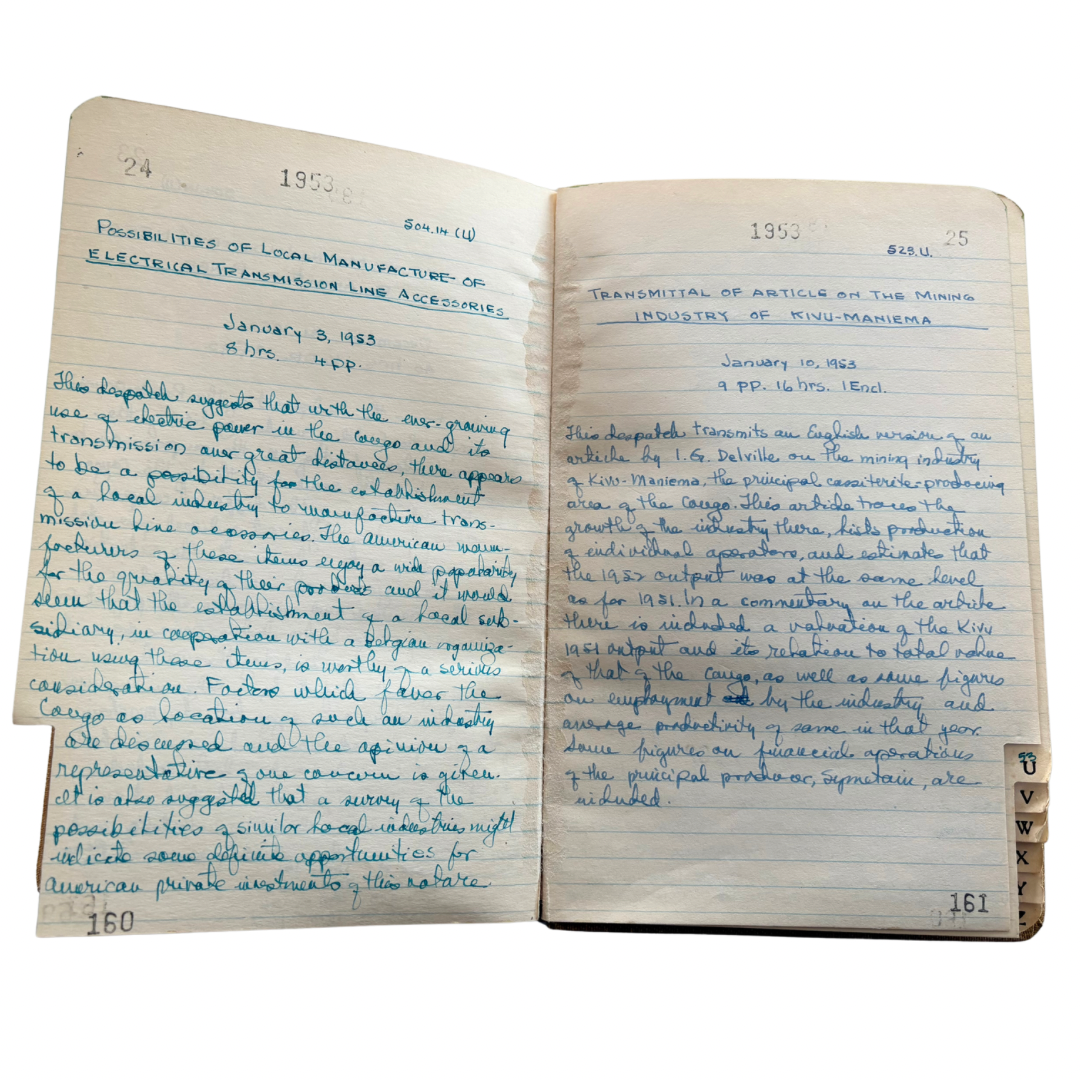 24
1953
504.14 (4)
POSSIBILITIES OF LOCAL MANUFACTURE OF
ELECTRICAL TRANSMISSION LINE ACCESSORIES
January 3, 1953
8 hrs. 4 pp.
This despatch suggests that with the ever-growing
use of electric power in the Congo and its
transmission over great distances, there appears
to be a possibility for the establishment
of a local industry to manufacture trans-
mission line accessories. The American manu-
facturers of these items enjoy a wide popularity
for the quality of their product and it would
seem that the establishment of a local sub-
sidiary, in cooperation with a Belgian organiza-
tion using these items, is worthy of a serious
consideration. Factors which favor the
Congo as location of such an industry
are discussed and the opinion of a
representative of one concern is given.
It is also suggested that a survey of the
possibilities of similar local industries might
indicate some definite opportunities for
American private investments of this nature.
160
1953
25
523.U.
TRANSMITTAL OF ARTICLE ON THE MINING
INDUSTRY OF KIVU-MANIEMA
January 10, 1953
9 pp. 16 hrs. 1 Encl.
This despatch transmits an English version of an
article by I.G. Delville on the mining industry
of Kivu-Maniema, the principal cassiterite-producing
area of the Congo. This article traces the
growth of the industry there, lists production
of individual operators, and estimates that
the 1952 output was at the same level
as for 1951. In a commentary on the article
there is included a valuation of the Kivu
1951 output and its relation to total value
of that of the Congo, as well as some figures
on employment by the industry and
average productivity of same in that year.
Some figures on financial operations
of the principal producer, Symetain, are
included.
161
53
U
V
W
X
Y
Z